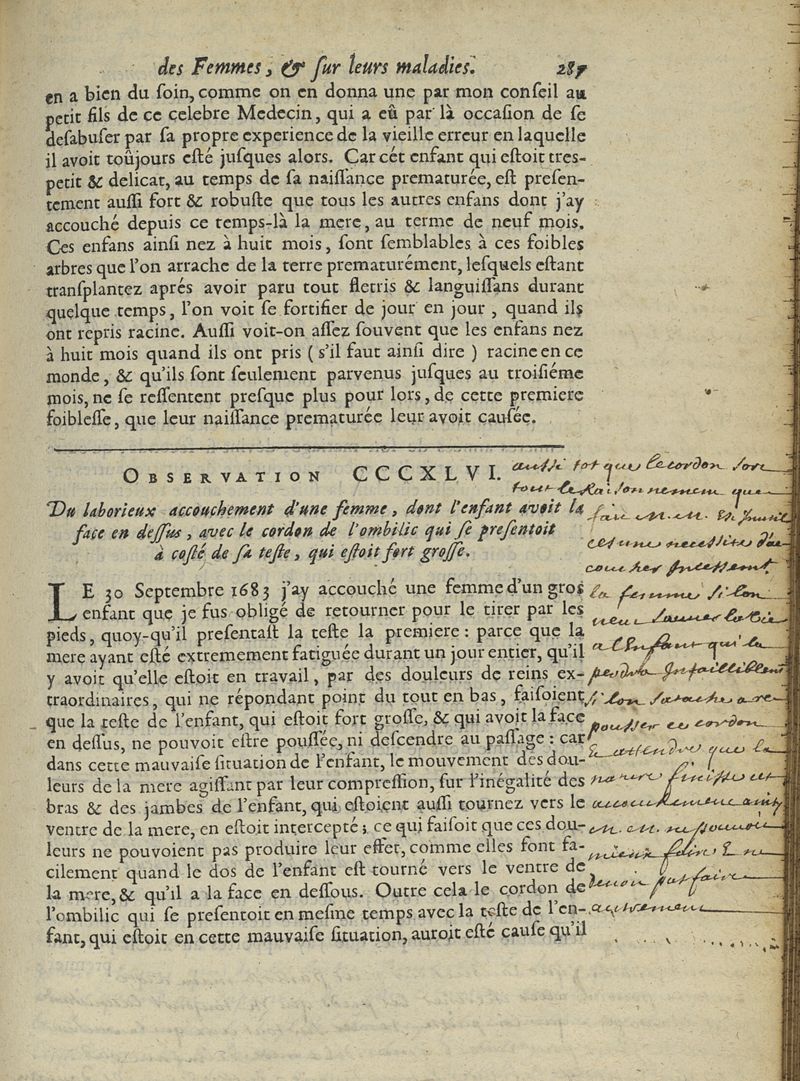 des Femmes, & ſur leurs maladies. 287
en a bien du ſoin, comme on en donna une par mon conſeil au
petit fils de ce celebre Medecin, qui a eû par là occaſion de ſe
deſabuſer par ſa propre experience de la vieille erreur en laquelle
il avoit toûjours eſté juſques alors. Car cét enfant qui eſtoit tres-
petit & delicat, au temps de ſa naiſſance prematurée, eſt preſen-
tement auſſi fort & robuſte que tous les autres enfans dont j'ay
accouché depuis ce temps-là la mere, au terme de neuf mois.
Ces enfans ainſi nez à huit mois, ſont ſemblables à ces foibles
arbres que l'on arrache de la terre prematurément, leſquels eſtant
tranſplantez aprés avoir paru tout fletris & languiſſans durant
quelque temps, l'on voit ſe fortifier de jour en jour, quand ils
ont repris racine. Auſſi voit-on aſſez ſouvent que les enfans nez
à huit mois quand ils ont pris ( s'il faut ainſi dire ) racine en ce
monde, & qu'ils ſont ſeulement parvenus juſques au troiſiéme
mois, ne ſe reſſentent preſque plus pour lors, de cette premiere
foibleſſe, que leur naiſſance prematurée leur avoit cauſée.
OBSERVATION CCCXLVI.
Du laborieux accouchement d'une femme, dont l'enfant avoit la
face en deſſus, avec le cordon de l'ombilic qui ſe preſentoit
à coſté de ſa teſte, qui eſtoit fort groſſe.
LE 30 Septembre 1683 j'ay accouché une femme d'un gros
enfant que je fus obligé de retourner pour le tirer par les
pieds, quoy-qu'il preſentaſt la teſte la premiere : parce que la
mere ayant eſté extremement fatiguée durant un jour entier, qu'il
y avoit qu'elle eſtoit en travail, par des douleurs de reins ex-
traordinaires, qui ne répondant point du tout en bas, faiſoient
que la teſte de l'enfant, qui eſtoit fort groſſe, & qui avoit la face
en deſſus, ne pouvoit eſtre pouſſée, ni deſcendre au paſſage : car
dans cette mauvaiſe ſituation de l'enfant, le mouvement des dou-
leurs de la mere agiſſant par leur compreſſion, ſur l'inégalité des
bras & des jambes de l'enfant, qui eſtoient auſſi tournez vers le
ventre de la mere, en eſtoit intercepté ; ce qui faiſoit que ces dou-
leurs ne pouvoient pas produire leur effet, comme elles font fa-
cilement quand le dos de l'enfant eſt tourné vers le ventre de
la mere, & qu'il a la face en deſſous. Outre cela le cordon de
l'ombilic qui ſe preſentoit en meſme temps avec la teſte de l'en-
fant, qui eſtoit en cette mauvaiſe ſituation, auroit eſté cauſe qu'il
aussi tot que le cordon sort
tout le
que
fait
et une necessité d'ac
coucher
la femme si lon
veut sauver la vie
a lenfant qui la
perdra infailliblem
si lon
pousser ce cordon
& attendre que la
nature finisse cet
accouchement